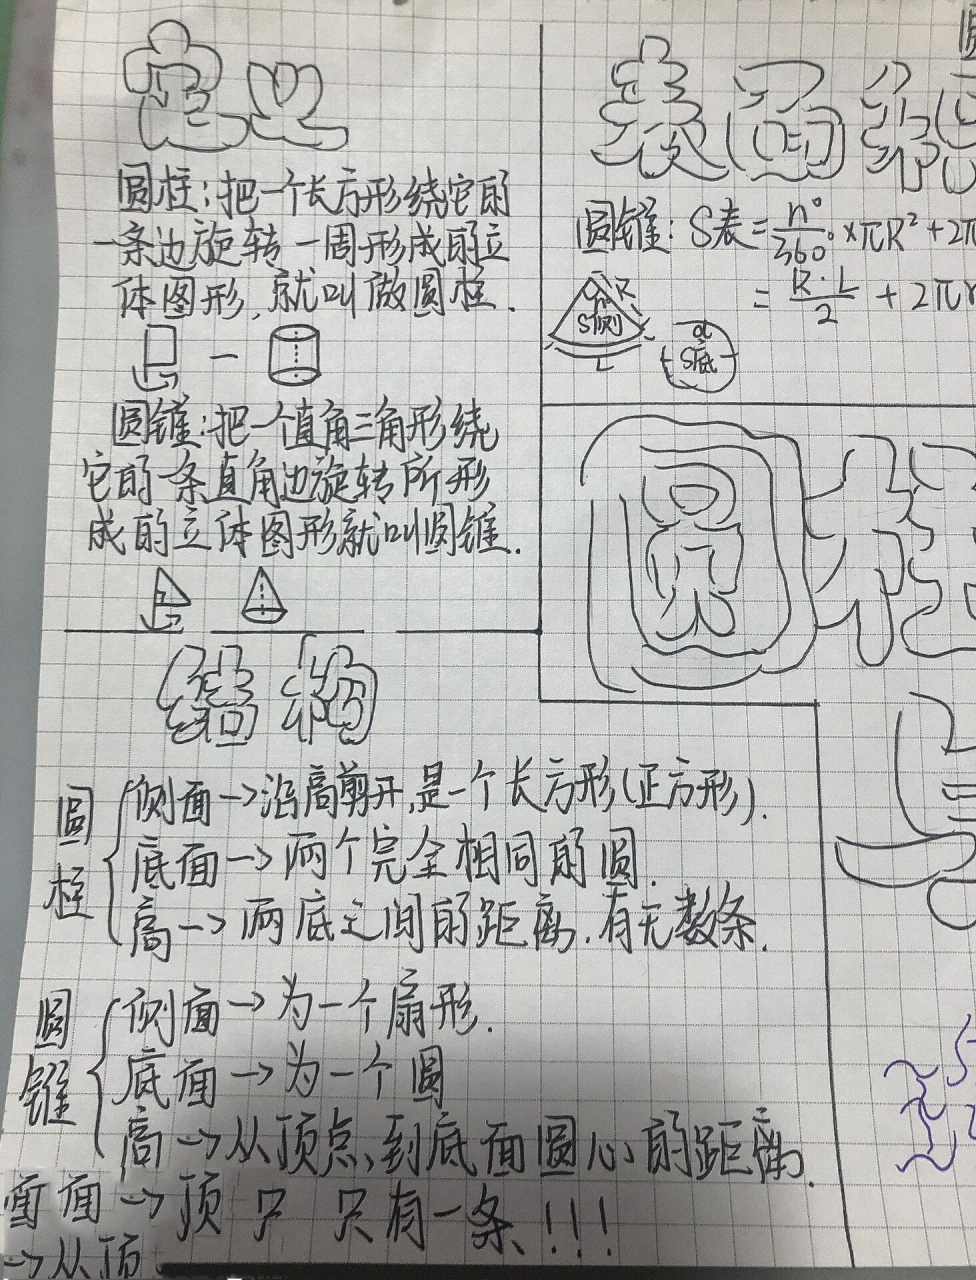 定义
圆柱:把一个长方形绕它的
一条边旋转一周形成的立
体图形,就叫做圆柱.
圆锥:把一个直角三角形绕
它的一条直角边旋转所形
成的立体图形就叫圆锥.
结构
圆柱
侧面→沿高剪开,是一个长方形(正方形).
底面→两个完全相同的圆.
高→两底之间的距离.有无数条.
圆锥
侧面→为一个扇形.
底面→为一个圆
高→从顶点到底面圆心的距离.
面→顶 只 只有一条!!!
→从顶
表面积
圆锥:S表=n°/360°×πR²+2π
=R·L/2+2πr
R
n°
S侧
L
d
S底
圆